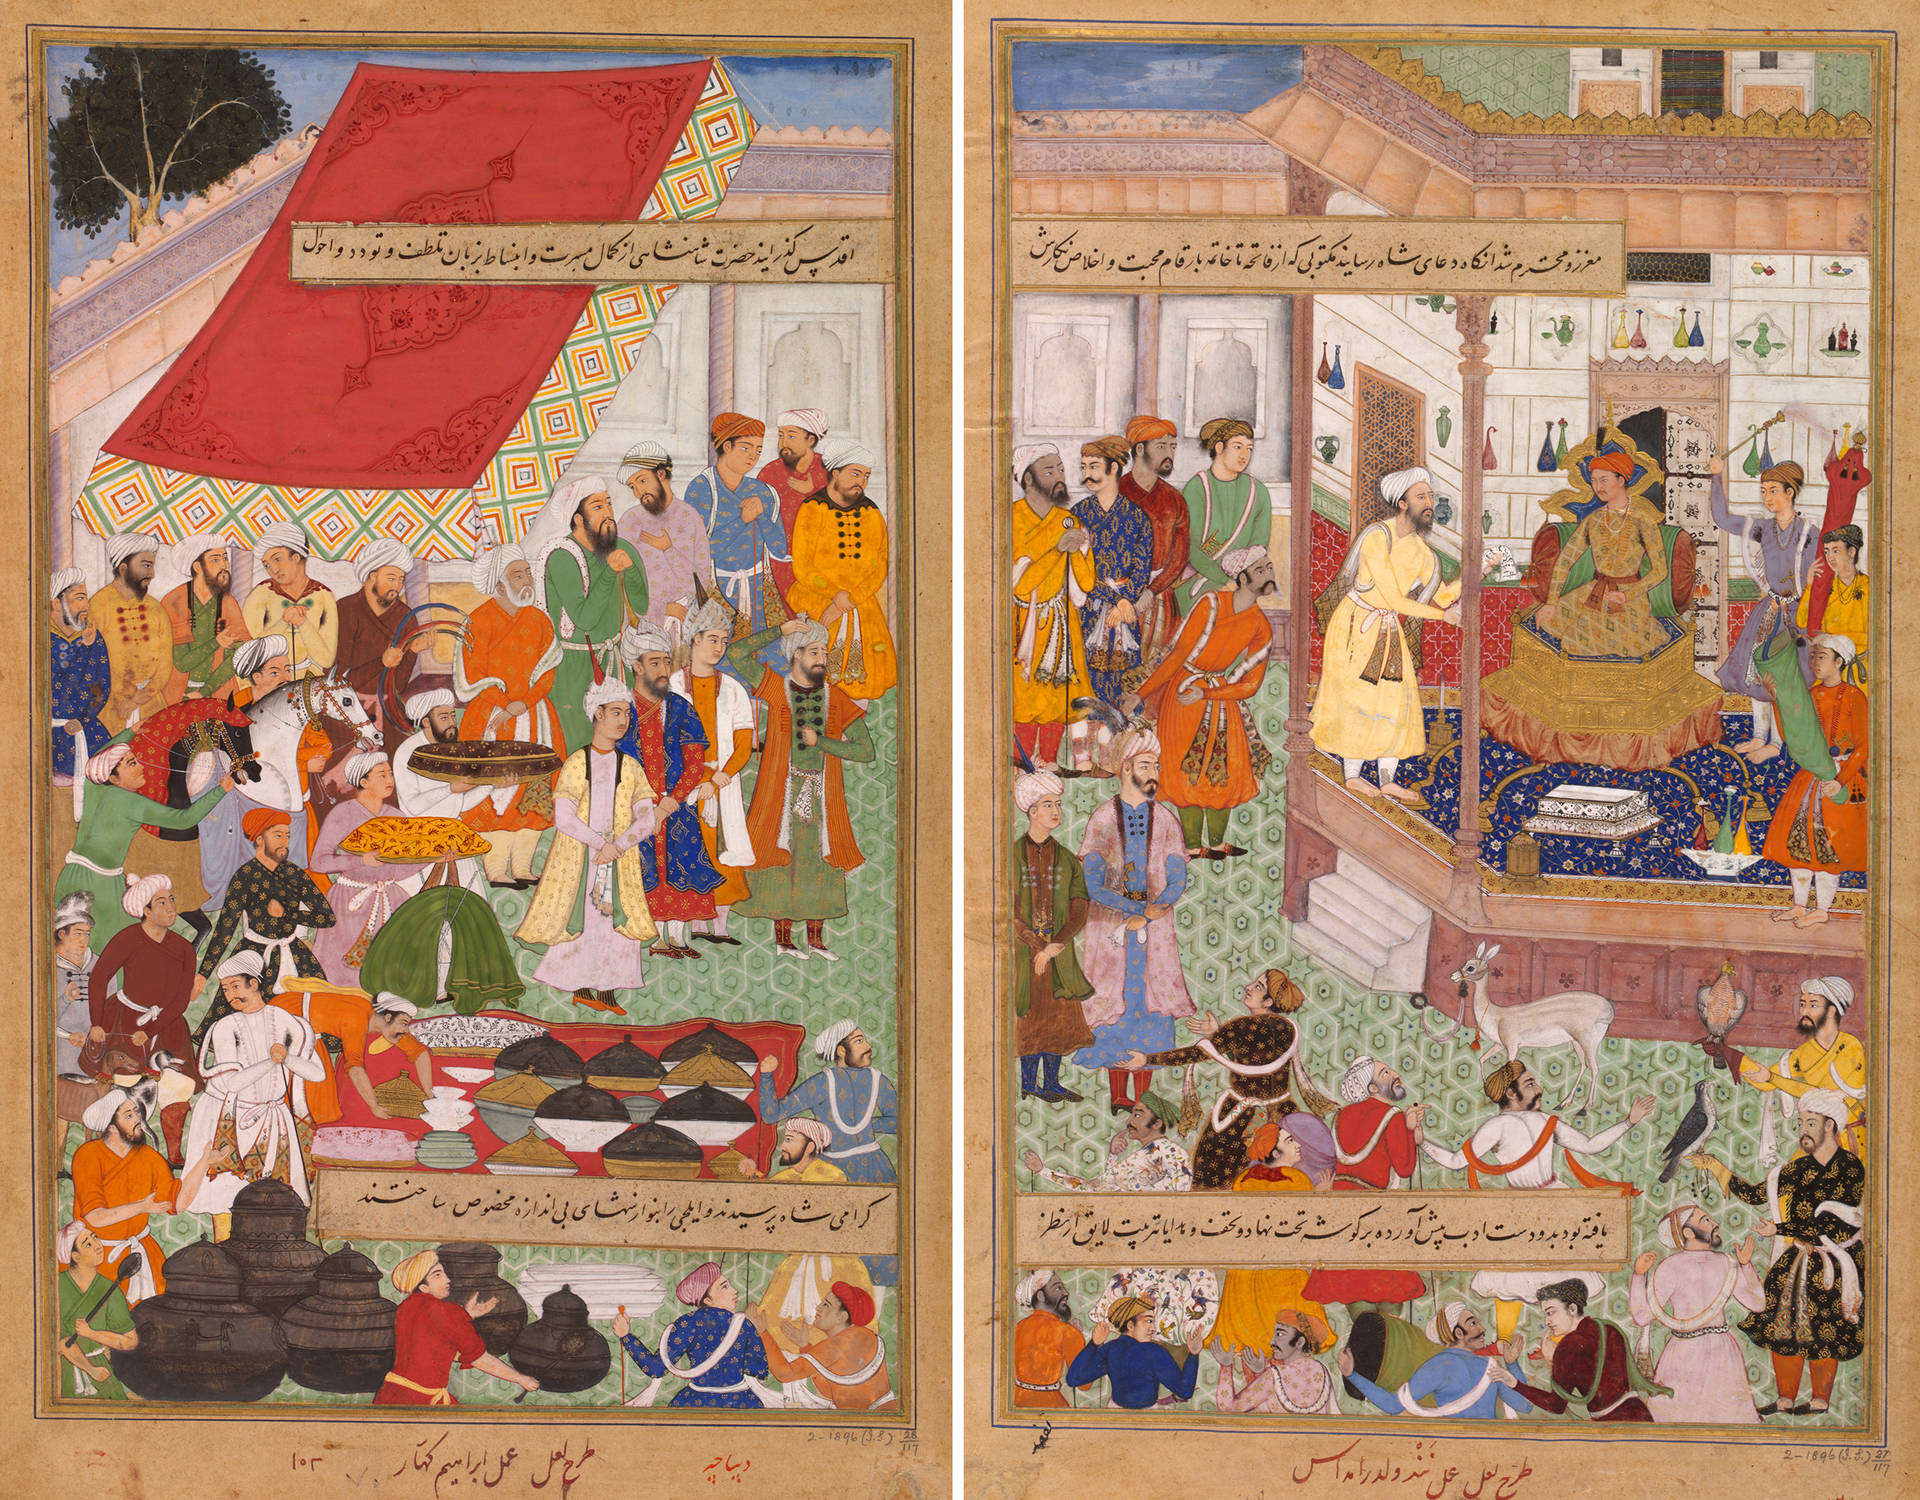 معزز و محترم شد انکاه دعای شاه رسانید مکتوبی که از فاتحه تا خاتمه بارقام محبت و اخلاص نکارش
یافته بود بدو دست ادب پیش آورده بر کوشه تخت نهاد و تحف و هدایا بترتیب لایق از نظر
طرح لعل عمل نند ولد رامداس
2-1896 (I.S.) 27/117
اقدس کذرانید حضرت شاهنشاهی از کمال مسرت و انبساط بزبان تلطف و تودد و احوال
کرامی شاه پرسیدند و ایلچی را بنوازشهای بی اندازه مخصوص ساختند
2-1896 (I.S.) 28/117
دیباچه
طرح لعل عمل ابراهیم کهار
۱۰۲